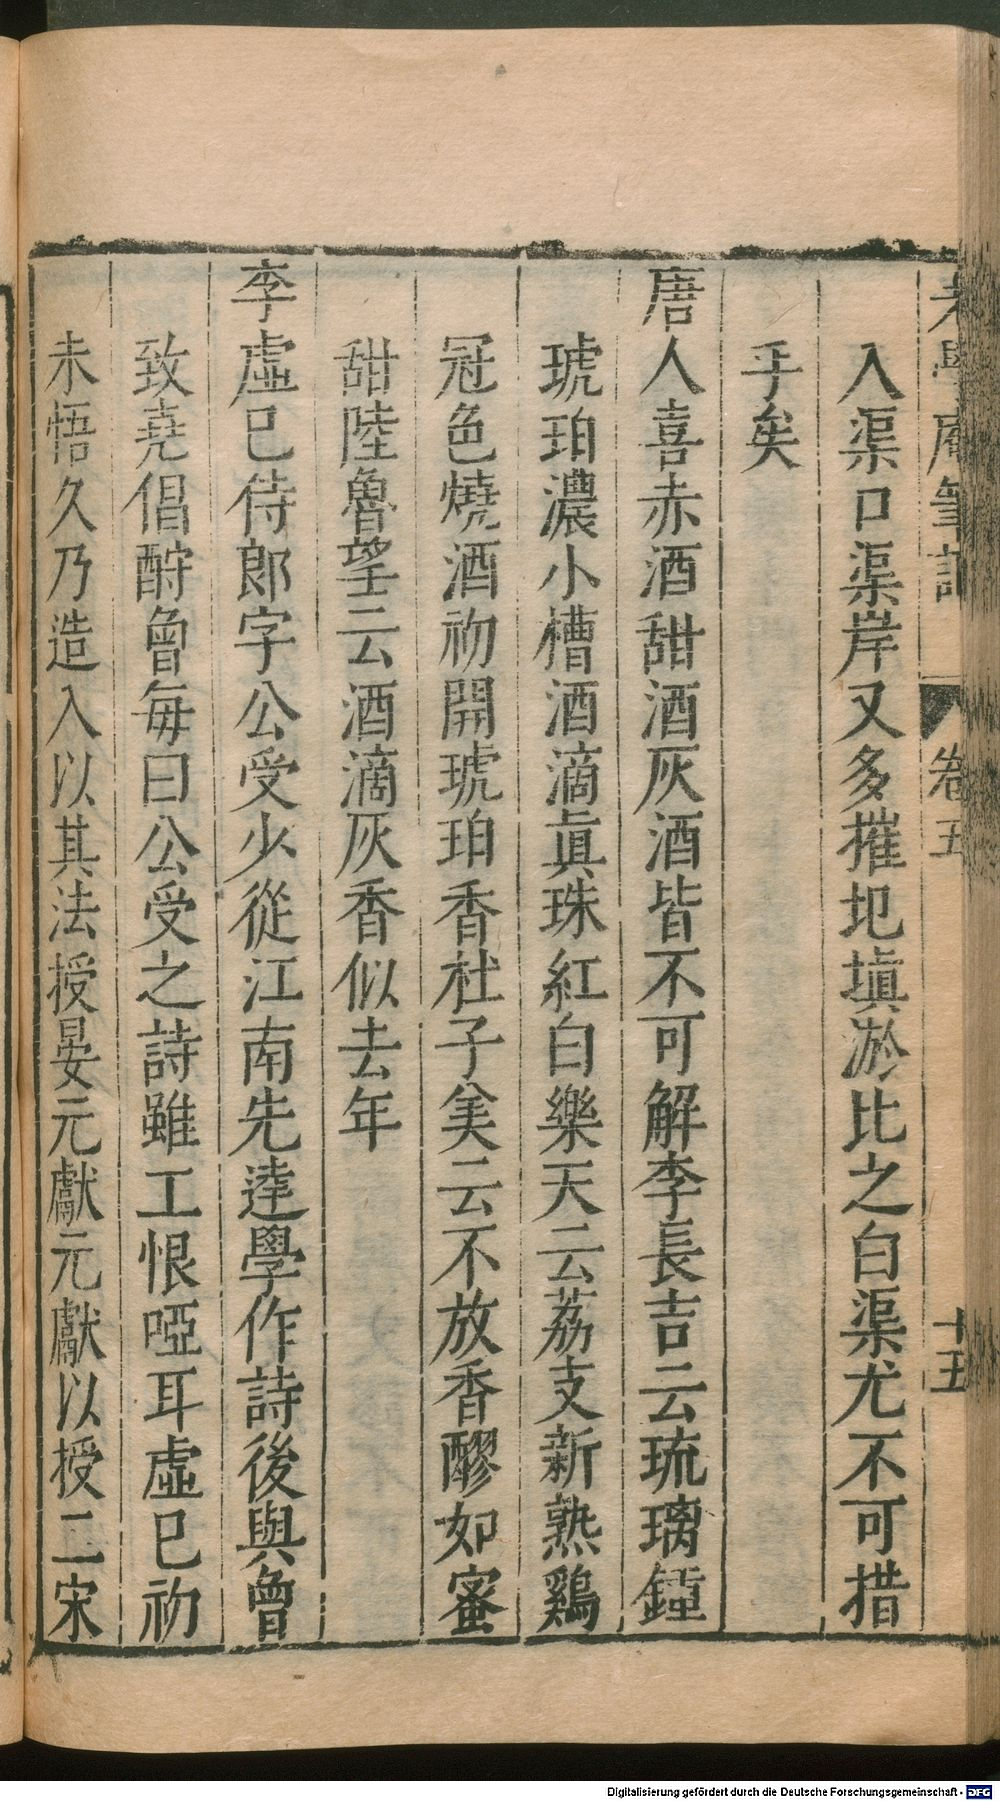 老學庵筆記 卷五 十五
入渠口渠岸又多摧圯塡淤比之白渠尤不可措
手矣
唐人喜赤酒甜酒灰酒皆不可解李長吉云琉璃鍾
琥珀濃小槽酒滴眞珠紅白樂天云荔支新熟鷄
冠色燒酒初開琥珀香杜子美云不放香醪如蜜
甜陸魯望云酒滴灰香似去年
李虛巳侍郎字公受少從江南先達學作詩後與曾
致堯倡酧曾每曰公受之詩雖工恨啞耳虛巳初
未悟久乃造入以其法授晏元獻元獻以授二宋
Digitalisierung gefördert durch die Deutsche Forschungsgemeinschaft - DFG